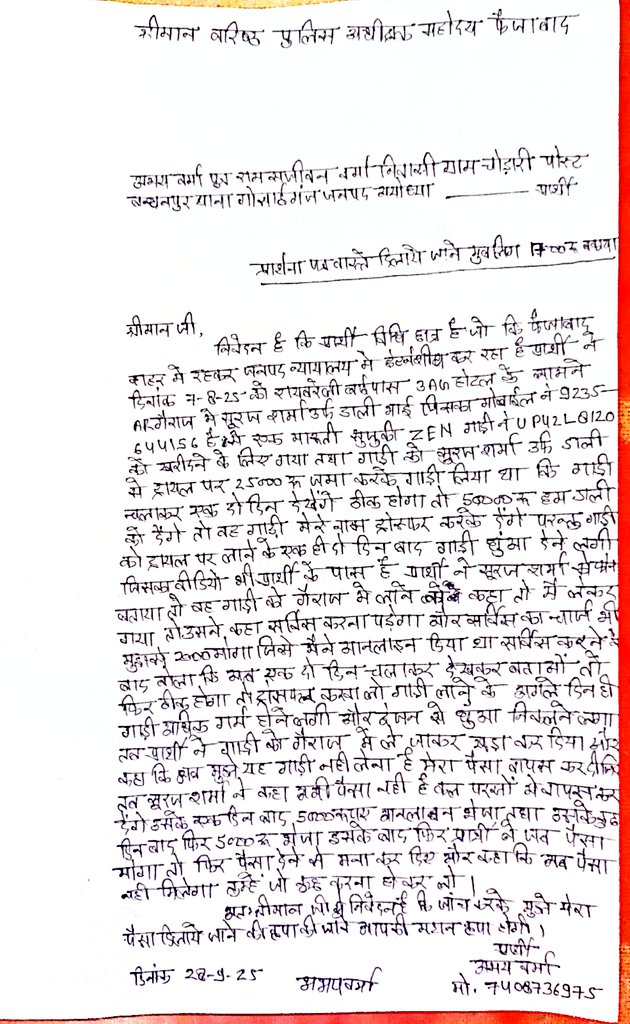 श्रीमान वरिष्ठ पुलिस अधीक्षक महोदय फैजाबाद
अभय वर्मा पुत्र राम सजीवन वर्मा निवासी ग्राम चोड़ारी पोस्ट
बन्धनपुर थाना गोसाईगंज जनपद अयोध्या ——— प्रार्थी
प्रार्थना पत्र वास्ते दिलाये जाने मुबलिग 17000 रू
श्रीमान जी,
निवेदन है कि प्रार्थी विधि छात्र है जो कि फैजाबाद
शहर में रहकर जनपद न्यायालय में इंटर्नशीप कर रहा है प्रार्थी ने
दिनांक 7-8-25 को रायबरेली बाईपास 3AG होटल के सामने
AR गैराज में सूरज शर्मा उर्फ डाली भाई जिसका मोबाईल नं 9235-
644156 है से एक मारूती सुजुकी ZEN गाड़ी नं UP42LQ120
को खरीदने के लिए गया तथा गाड़ी को सूरज शर्मा उर्फ डाली
से ट्रायल पर 25000 रू जमा करके गाड़ी लिया था कि गाड़ी
चलाकर एक दो दिन देखेंगे ठीक होगा तो 50000 रू हम डाली
को देंगे तो वह गाड़ी मेरे नाम ट्रांसफर करके देंगे परन्तु गाड़ी
को ट्रायल पर लाने के एक ही दो दिन बाद गाड़ी धुंआ देने लगी
जिसका वीडियो भी प्रार्थी के पास है प्रार्थी ने सूरज शर्मा से
बताया तो वह गाड़ी को गैराज में लाने कहा तो मैं लेकर
गया तो उसने कहा सर्विस करना पड़ेगा और सर्विस का चार्ज भी
मुझसे 2000 मांगा जिसे मैंने आनलाइन दिया था सर्विस करने के
बाद बोला कि अब एक दो दिन चलाकर देखकर बताओ तो
फिर ठीक होगा तो ट्रांसफर करवा लो गाड़ी लाने के अगले दिन ही
गाड़ी अधिक गर्म होने लगी और इंजन से धुंआ निकलने लगा
तब प्रार्थी ने गाड़ी को गैराज में ले जाकर खड़ा कर दिया और
कहा कि अब मुझे यह गाड़ी नही लेना है मेरा पैसा वापस कर दीजिए
तब सूरज शर्मा ने कहा अभी पैसा नही है कल परसों में वापस कर
देंगे उसके एक दिन बाद 5000 रूपए आनलाइन भेजा तथा उसके कुछ
दिन बाद फिर 5000 रू भेजा उसके बाद फिर प्रार्थी ने जब पैसा
मांगा तो फिर पैसा देने से मना कर दिए और कहा कि अब पैसा
नही मिलेगा तुम्हें जो कुछ करना हो कर लो।
अतः श्रीमान जी से निवेदन है कि जांच करके मुझे मेरा
पैसा दिलाये जाने की कृपा की जाये आपकी महान कृपा होगी।
प्रार्थी
अभय वर्मा
दिनांक 28-9-25 अभय वर्मा मो. 7408736975